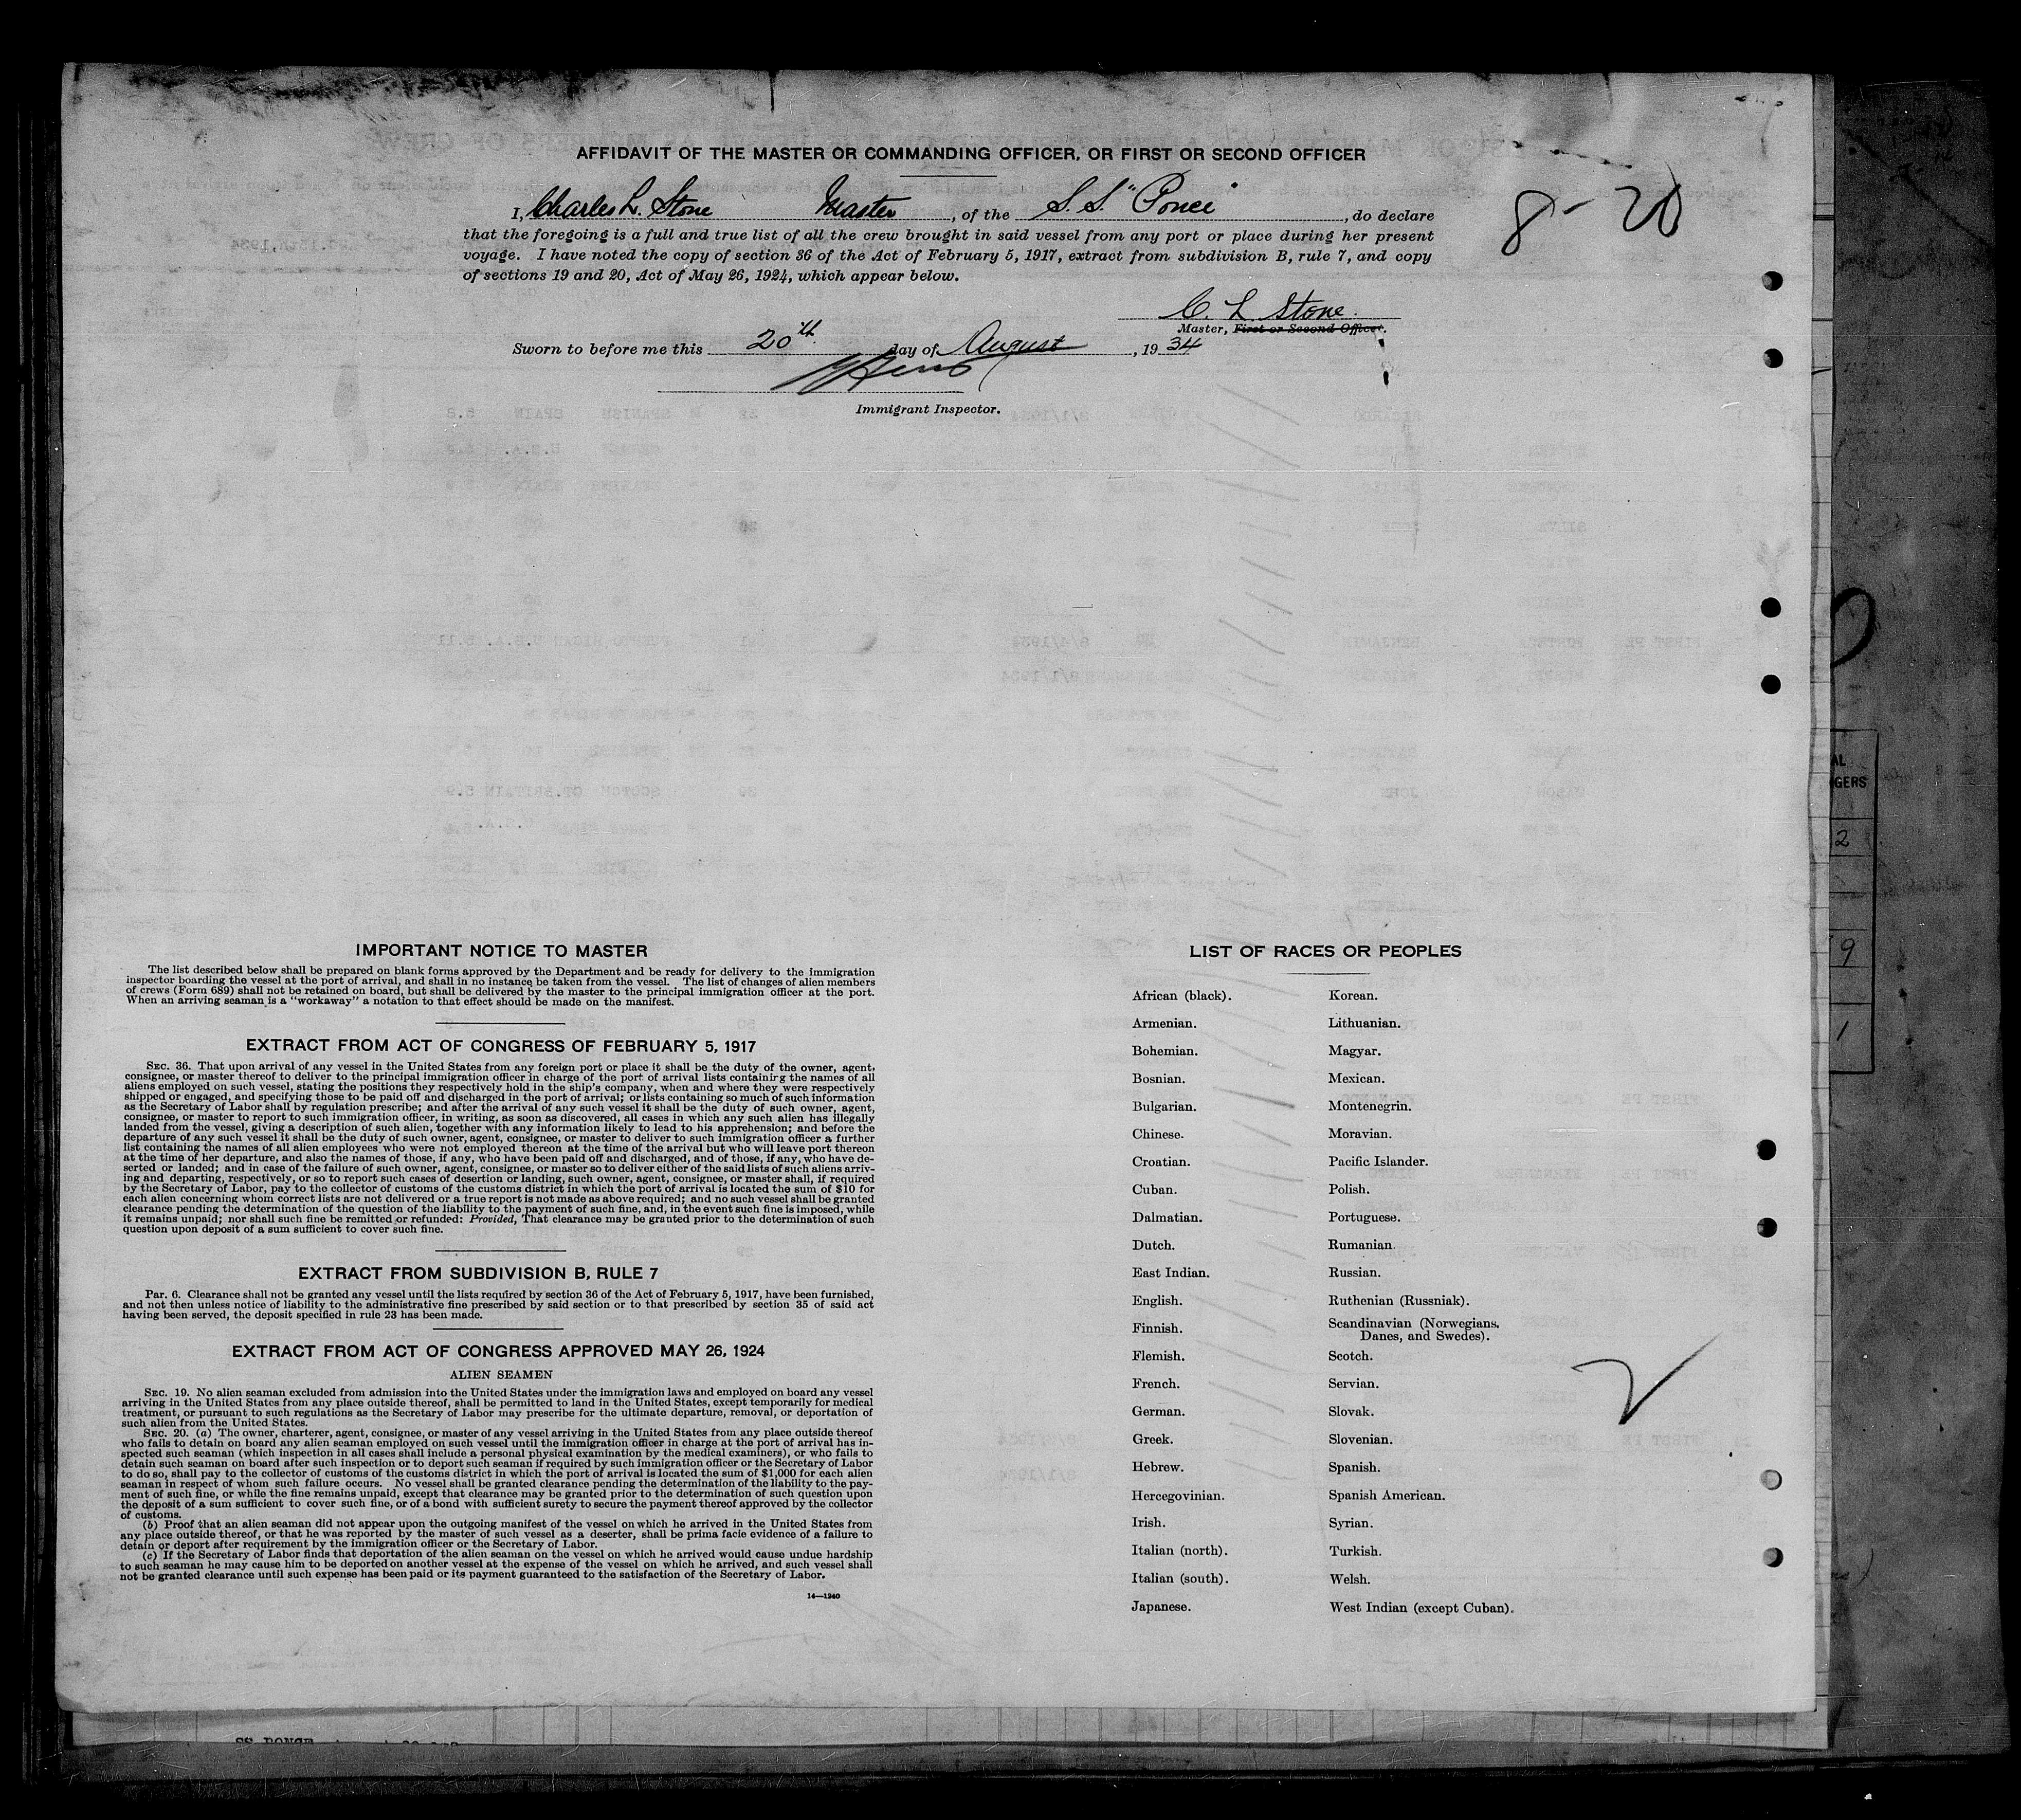 AFFIDAVIT OF THE MASTER OR COMMANDING OFFICER, OR FIRST OR SECOND OFFICER
I, Charles L. Stone Master, of the S.S. "Ponce", do declare
that the foregoing is a full and true list of all the crew brought in said vessel from any port or place during her present
voyage. I have noted the copy of section 36 of the Act of February 5, 1917, extract from subdivision B, rule 7, and copy
of sections 19 and 20, Act of May 26, 1924, which appear below.
8-20
C. L. Stone
Master, First or Second Officer.
Sworn to before me this 20th day of August, 1934
Immigrant Inspector.
IMPORTANT NOTICE TO MASTER
The list described below shall be prepared on blank forms approved by the Department and be ready for delivery to the immigration
inspector boarding the vessel at the port of arrival, and shall in no instance be taken from the vessel. The list of changes of alien members
of crews (Form 689) shall not be retained on board, but shall be delivered by the master to the principal immigration officer at the port.
When an arriving seaman is a "workaway" a notation to that effect should be made on the manifest.
EXTRACT FROM ACT OF CONGRESS OF FEBRUARY 5, 1917
SEC. 36. That upon arrival of any vessel in the United States from any foreign port or place it shall be the duty of the owner, agent,
consignee, or master thereof to deliver to the principal immigration officer in charge of the port of arrival lists containing the names of all
aliens employed on such vessel, stating the positions they respectively hold in the ship's company, when and where they were respectively
shipped or engaged, and specifying those to be paid off and discharged in the port of arrival; or lists containing so much of such information
as the Secretary of Labor shall by regulation prescribe; and after the arrival of any such vessel it shall be the duty of such owner, agent,
consignee, or master to report to such immigration officer, in writing, as soon as discovered, all cases in which any such alien has illegally
landed from the vessel, giving a description of such alien, together with any information likely to lead to his apprehension; and before the
departure of any such vessel it shall be the duty of such owner, agent, consignee, or master to deliver to such immigration officer a further
list containing the names of all alien employees who were not employed thereon at the time of the arrival but who will leave port thereon
at the time of her departure, and also the names of those, if any, who have been paid off and discharged, and of those, if any, who have de-
serted or landed; and in case of the failure of such owner, agent, consignee, or master so to deliver either of the said lists of such aliens arriv-
ing and departing, respectively, or so to report such cases of desertion or landing, such owner, agent, consignee, or master shall, if required
by the Secretary of Labor, pay to the collector of customs of the customs district in which the port of arrival is located the sum of $10 for
each alien concerning whom correct lists are not delivered or a true report is not made as above required; and no such vessel shall be granted
clearance pending the determination of the question of the liability to the payment of such fine, and, in the event such fine is imposed, while
it remains unpaid; nor shall such fine be remitted or refunded: Provided, That clearance may be granted prior to the determination of such
question upon deposit of a sum sufficient to cover such fine.
EXTRACT FROM SUBDIVISION B, RULE 7
Par. 6. Clearance shall not be granted any vessel until the lists required by section 36 of the Act of February 5, 1917, have been furnished,
and not then unless notice of liability to the administrative fine prescribed by said section or to that prescribed by section 35 of said act
having been served, the deposit specified in rule 23 has been made.
EXTRACT FROM ACT OF CONGRESS APPROVED MAY 26, 1924
ALIEN SEAMEN
SEC. 19. No alien seaman excluded from admission into the United States under the immigration laws and employed on board any vessel
arriving in the United States from any place outside thereof, shall be permitted to land in the United States, except temporarily for medical
treatment, or pursuant to such regulations as the Secretary of Labor may prescribe for the ultimate departure, removal, or deportation of
such alien from the United States.
SEC. 20. (a) The owner, charterer, agent, consignee, or master of any vessel arriving in the United States from any place outside thereof
who fails to detain on board any alien seaman employed on such vessel until the immigration officer in charge at the port of arrival has in-
spected such seaman (which inspection in all cases shall include a personal physical examination by the medical examiners), or who fails to
detain such seaman on board after such inspection or to deport such seaman if required by such immigration officer or the Secretary of Labor
to do so, shall pay to the collector of customs of the customs district in which the port of arrival is located the sum of $1,000 for each alien
seaman in respect of whom such failure occurs. No vessel shall be granted clearance pending the determination of the liability to the pay-
ment of such fine, or while the fine remains unpaid, except that clearance may be granted prior to the determination of such question upon
the deposit of a sum sufficient to cover such fine, or of a bond with sufficient surety to secure the payment thereof approved by the collector
of customs.
(b) Proof that an alien seaman did not appear upon the outgoing manifest of the vessel on which he arrived in the United States from
any place outside thereof, or that he was reported by the master of such vessel as a deserter, shall be prima facie evidence of a failure to
detain or deport after requirement by the immigration officer or the Secretary of Labor.
(c) If the Secretary of Labor finds that deportation of the alien seaman on the vessel on which he arrived would cause undue hardship
to such seaman he may cause him to be deported on another vessel at the expense of the vessel on which he arrived, and such vessel shall
not be granted clearance until such expense has been paid or its payment guaranteed to the satisfaction of the Secretary of Labor.
14—1240
LIST OF RACES OR PEOPLES
African (black).
Armenian.
Bohemian.
Bosnian.
Bulgarian.
Chinese.
Croatian.
Cuban.
Dalmatian.
Dutch.
East Indian.
English.
Finnish.
Flemish.
French.
German.
Greek.
Hebrew.
Hercegovinian.
Irish.
Italian (north).
Italian (south).
Japanese.
Korean.
Lithuanian.
Magyar.
Mexican.
Montenegrin.
Moravian.
Pacific Islander.
Polish.
Portuguese.
Rumanian.
Russian.
Ruthenian (Russniak).
Scandinavian (Norwegians,
Danes, and Swedes).
Scotch.
Servian.
Slovak.
Slovenian.
Spanish.
Spanish American.
Syrian.
Turkish.
Welsh.
West Indian (except Cuban).
AL
GERS
2
9
1
SS PONCE